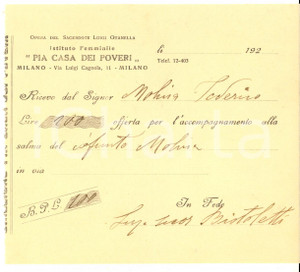 OPERA DEL SACERDOTE LUIGI CITADELLA
Istituto Femminile
" PIA CASA DEI POVERI „
MILANO - Via Luigi Cagnola, 11 - MILANO
li 192
Telef. 12-403
Ricevo dal Signor Molina Federico
Lire 200 offerta per l'accompagnamento alla
salma del defunto Molina
in via
B. P. L. 200
In Fede
Sup. suor Bistoletti